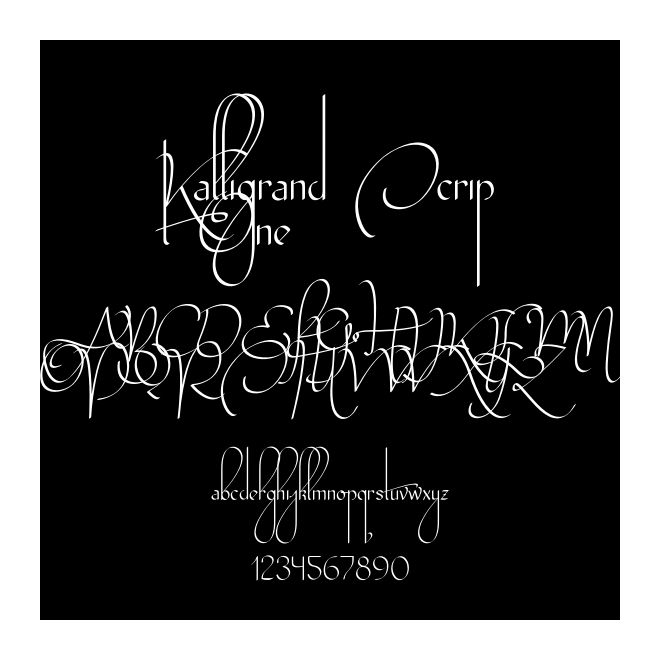 Kalligrand Scrip
One
ABCDEFGHIJKLMN
OPQRSTUVWXYZ
abcdefghijklmnopqrstuvwxyz
1234567890